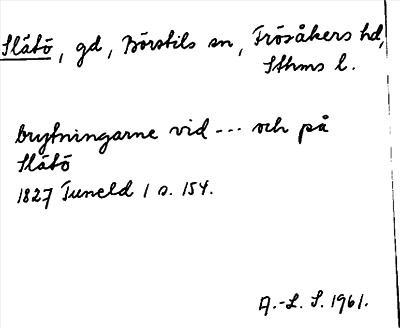 Slätö, gd, Börstils sn, Frösåkers hd,
Sthms l.
brytningarne vid --- och på
Slätö
1827 Tuneld 1 s. 154.
A.-L. S. 1961.